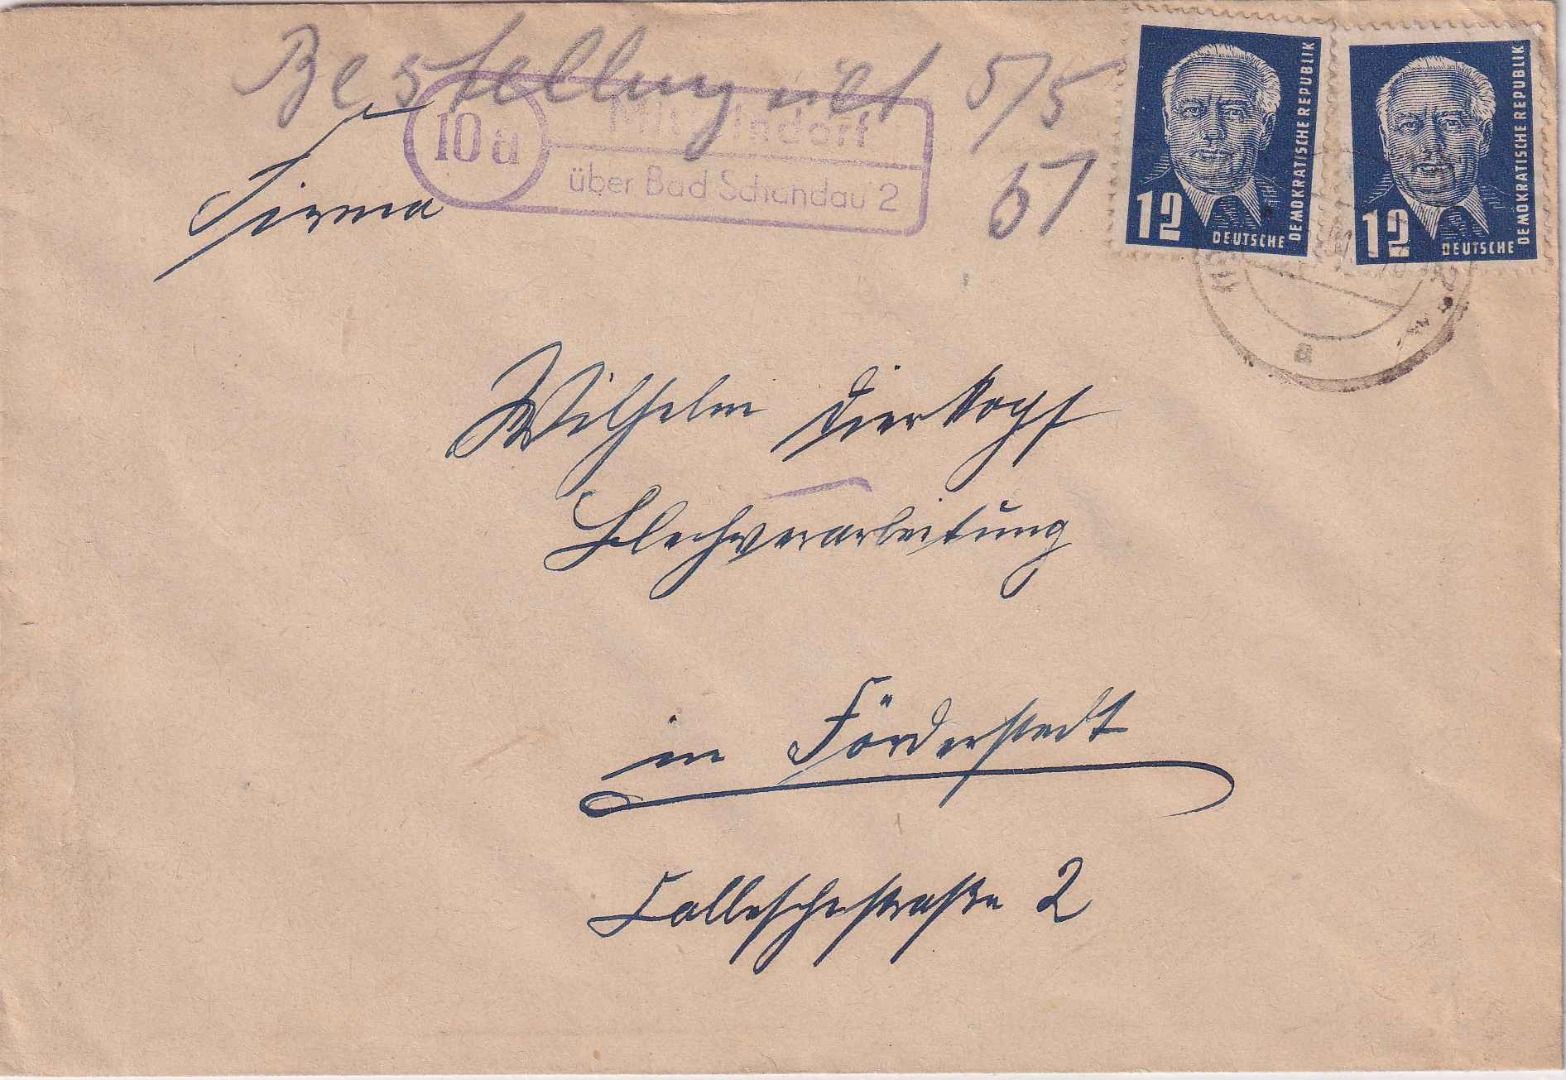 Bestellung 5/5
51
10a
Mittelndorf
über Bad Schandau 2
Firma
12
DEUTSCHE
DEMOKRATISCHE REPUBLIK
12
DEUTSCHE
DEMOKRATISCHE REPUBLIK
a
Wilhelm Dierkopf
Blechverarbeitung
in Förderstedt
Calbeschestraße 2